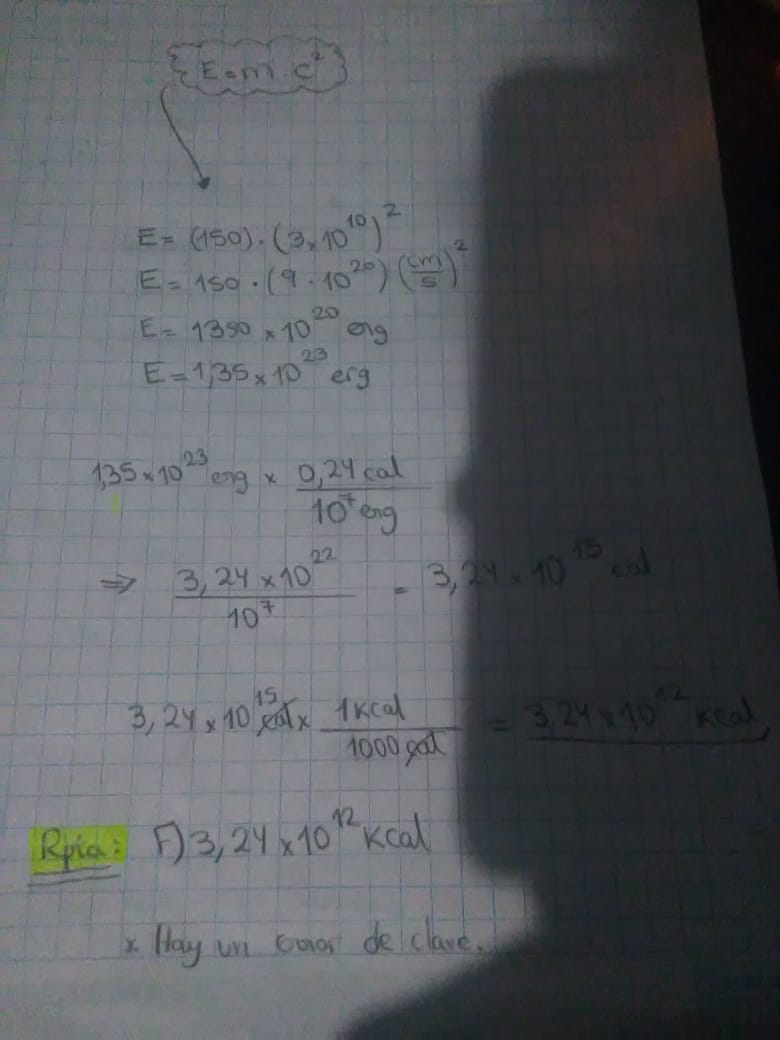 E = m · c²
E = (150) · (3 × 10¹⁰)²
E = 150 · (9 · 10²⁰) (cm/s)²
E = 1350 × 10²⁰ erg
E = 1,35 × 10²³ erg
1,35 × 10²³ erg × 0,24 cal / 10⁷ erg
⇒ 3,24 × 10²² / 10⁷ = 3,24 × 10¹⁵ cal
3,24 × 10¹⁵ cal × 1 kcal / 1000 cal = 3,24 × 10¹² kcal
Rpta: F) 3,24 × 10¹² kcal
× Hay un error de clave.